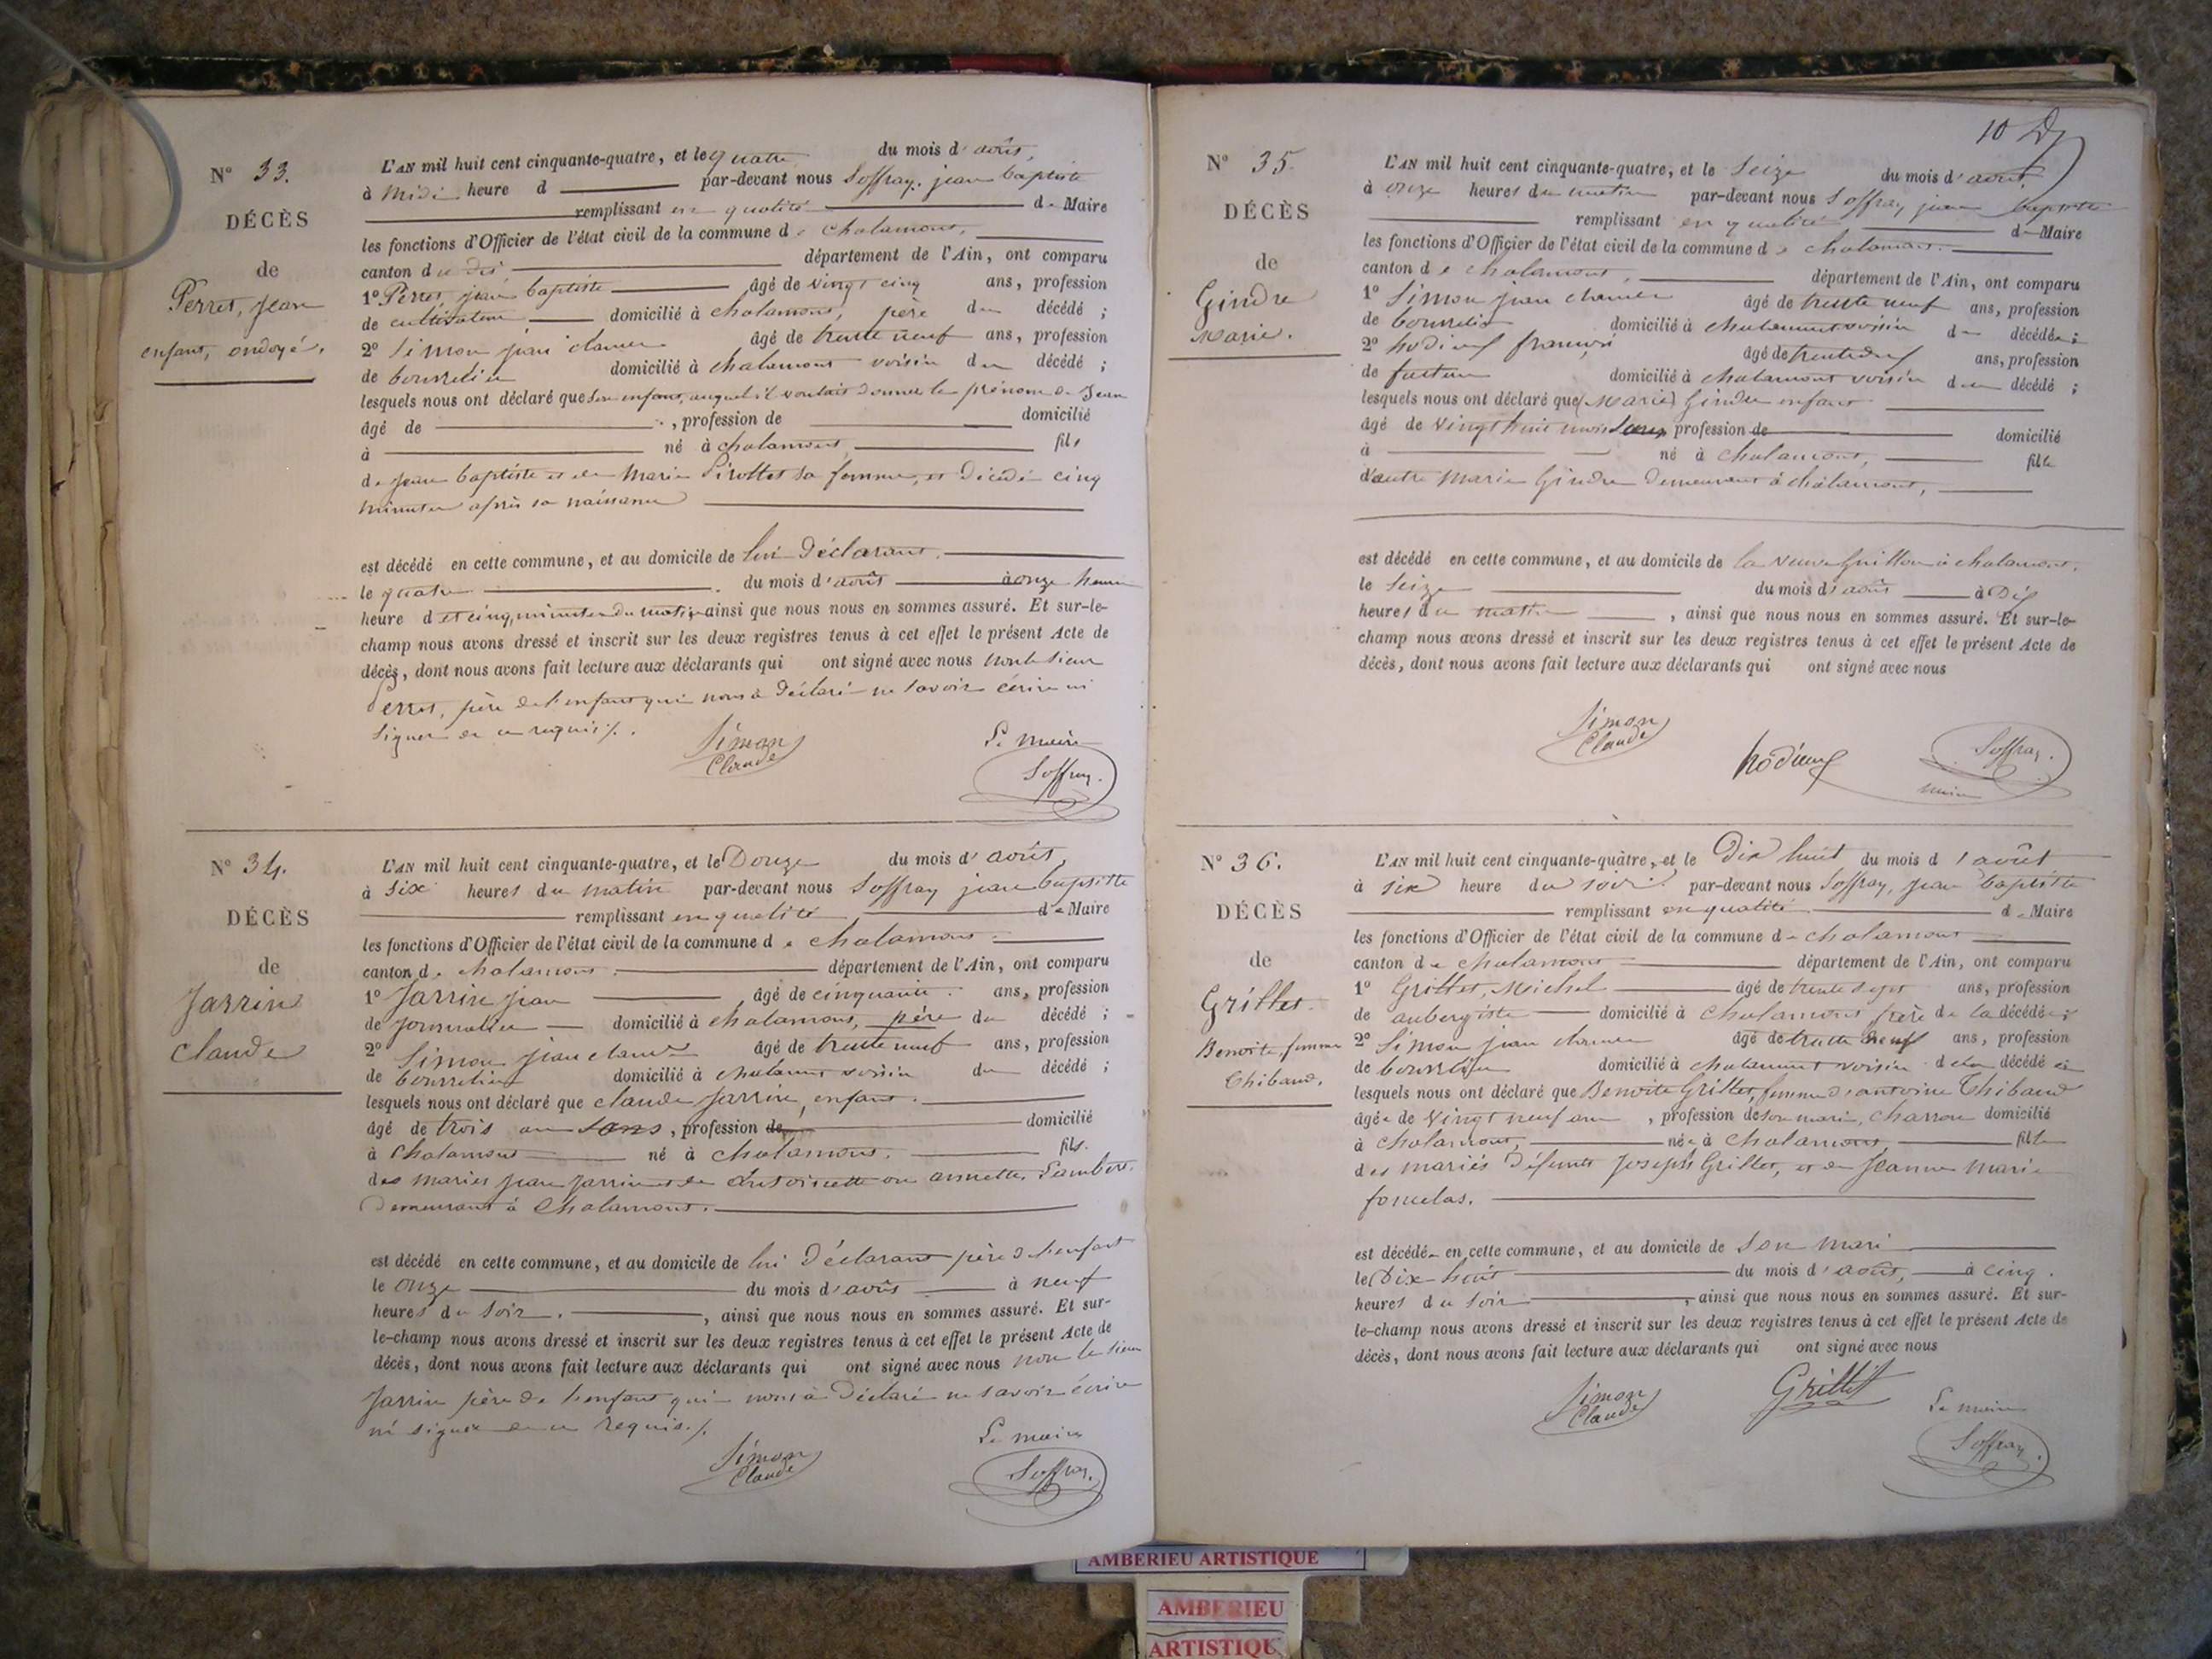 N° 33.
DÉCÈS
de
Perret, Jean
enfant, ondoyé.
L'AN mil huit cent cinquante-quatre, et le quatre du mois d'août,
à Midi heure d par-devant nous Soffray, jean baptiste
remplissant en qualité de Maire
les fonctions d'Officier de l'état civil de la commune de chalamont,
canton du dit département de l'Ain, ont comparu
1° Perret, jean baptiste âgé de vingt cinq ans, profession
de cultivateur domicilié à chalamont, père du décédé ;
2° Simon jean claude âgé de trente neuf ans, profession
de bourrelier domicilié à chalamont voisin du décédé ;
lesquels nous ont déclaré que son enfant, auquel il voulait donner le prénom de Jean
âgé de , profession de domicilié
à né à chalamont, fils
de jean baptiste et de Marie Pirollet sa femme, est décédé cinq
minutes après sa naissance
est décédé en cette commune, et au domicile de lui déclarant.
le quatre du mois d'août à onze heures
heure d et cinq minutes du matin ainsi que nous nous en sommes assuré. Et sur-le-
champ nous avons dressé et inscrit sur les deux registres tenus à cet effet le présent Acte de
décès, dont nous avons fait lecture aux déclarants qui ont signé avec nous non le sieur
Perret, père de l'enfant qui nous a déclaré ne savoir écrire ni
signer de ce requis /.
Simon
Claude
Le maire
Soffray.
N° 34.
DÉCÈS
de
Jarrin
claude
L'AN mil huit cent cinquante-quatre, et le Douze du mois d'août,
à six heures du matin par-devant nous Soffray jean baptiste
remplissant en qualité de Maire
les fonctions d'Officier de l'état civil de la commune de chalamont
canton de chalamont. département de l'Ain, ont comparu
1° Jarrin jean âgé de cinquante ans, profession
de journalier domicilié à chalamont, père du décédé ;
2° Simon jean claude âgé de trente neuf ans, profession
de bourrelier domicilié à chalamont voisin du décédé ;
lesquels nous ont déclaré que claude Jarrin, enfant.
âgé de trois ans, profession de domicilié
à chalamont né à chalamont. fils.
des mariés jean jarrin et de antoinette ou annette Lambert.
demeurant à chalamont.
est décédé en cette commune, et au domicile de lui déclarant père de l'enfant
le onze du mois d'août à neuf
heures du soir. , ainsi que nous nous en sommes assuré. Et sur-
le-champ nous avons dressé et inscrit sur les deux registres tenus à cet effet le présent Acte de
décès, dont nous avons fait lecture aux déclarants qui ont signé avec nous non le sieur
Jarrin père de l'enfant qui nous a déclaré ne savoir écrire
ni signer de ce requis. /.
Simon
Claude
Le maire
Soffray.
10
N° 35.
DÉCÈS
de
Gindre
Marie.
L'AN mil huit cent cinquante-quatre, et le Seize du mois d'août
à onze heures du matin par-devant nous Soffray, jean baptiste
remplissant en qualité de Maire
les fonctions d'Officier de l'état civil de la commune de chalamont.
canton de chalamont. département de l'Ain, ont comparu
1° Simon jean claude âgé de trente neuf ans, profession
de bourrelier domicilié à chalamont voisin du décédée ;
2° hodieux françois âgé de trente deux ans, profession
de facteur domicilié à chalamont voisin du décédé ;
lesquels nous ont déclaré que (Marie) Gindre enfant
âgé de vingt huit mois profession de domicilié
à né à chalamont, fille
d'autre Marie Gindre demeurant à chalamont,
est décédé en cette commune, et au domicile de la veuve Guillon à chalamont.
le Seize du mois d'août à Dix
heures du matin , ainsi que nous nous en sommes assuré. Et sur-le-
champ nous avons dressé et inscrit sur les deux registres tenus à cet effet le présent Acte de
décès, dont nous avons fait lecture aux déclarants qui ont signé avec nous
Simon
Claude
hodieux
Soffray.
maire
N° 36.
DÉCÈS
de
Grillet.
Benoite femme
Thibaud.
L'AN mil huit cent cinquante-quatre, et le Dix huit du mois d'août
à six heure du soir par-devant nous Soffray, jean baptiste
remplissant en qualité de Maire
les fonctions d'Officier de l'état civil de la commune de chalamont
canton de chalamont département de l'Ain, ont comparu
1° Grillet, Michel âgé de trente sept ans, profession
de aubergiste domicilié à chalamont frère de la décédée ;
2° Simon jean claude âgé de trente neuf ans, profession
de bourrelier domicilié à chalamont voisin de la décédée
lesquels nous ont déclaré que Benoite Grillet, femme d'antoine Thibaud
âgée de vingt neuf ans , profession de son mari, charron domicilié
à chalamont, née à chalamont fille
des mariés défunts Joseph Grillet, et de Jeanne Marie
fomelas.
est décédée en cette commune, et au domicile de son mari
le Dix-huit du mois d'août, à cinq.
heures du soir , ainsi que nous nous en sommes assuré. Et sur-
le-champ nous avons dressé et inscrit sur les deux registres tenus à cet effet le présent Acte de
décès, dont nous avons fait lecture aux déclarants qui ont signé avec nous
Simon
Claude
Grillet
Le maire
Soffray.
AMBERIEU ARTISTIQUE
AMBERIEU
ARTISTIQUE